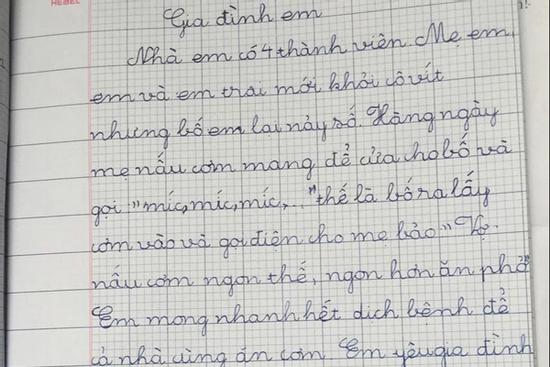 REBEL
Gia đình em
Nhà em có 4 thành viên. Mẹ em,
em và em trai mới khỏi cô vít
nhưng bố em lại nảy số. Hàng ngày
mẹ nấu cơm mang để cửa cho bố và
gọi "míc, míc, míc,..." thế là bố ra lấy
cơm vào và gọi điện cho mẹ bảo "Vợ
nấu cơm ngon thế, ngon hơn ăn phở"
Em mong nhanh hết dịch bệnh để
cả nhà cùng ăn cơm Em yêu gia đình